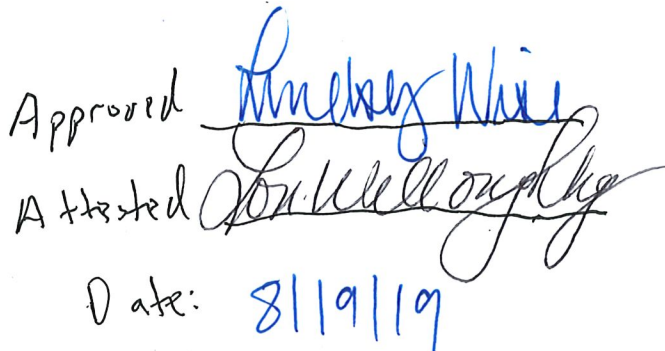 Approved Lindsey Wise
Attested Lori Willoughby
Date: 8/19/19